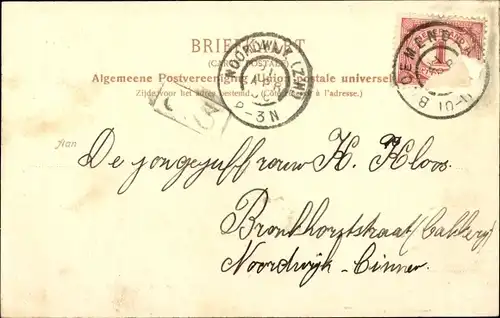 BRIEFKAART
(CARTE POSTALE)
Algemeene Postvereeniging (Union postale universelle)
Zijde voor het adres bestemd. (Côté réservé à l'adresse.)
NOORDWIJK (ZH)
2-3N
BLOEMEND
10-11
1
Aan
De jongejuffrouw H. Kloos.
Bronkhorststraat (Gallery)
Noordwijk-Binnen.